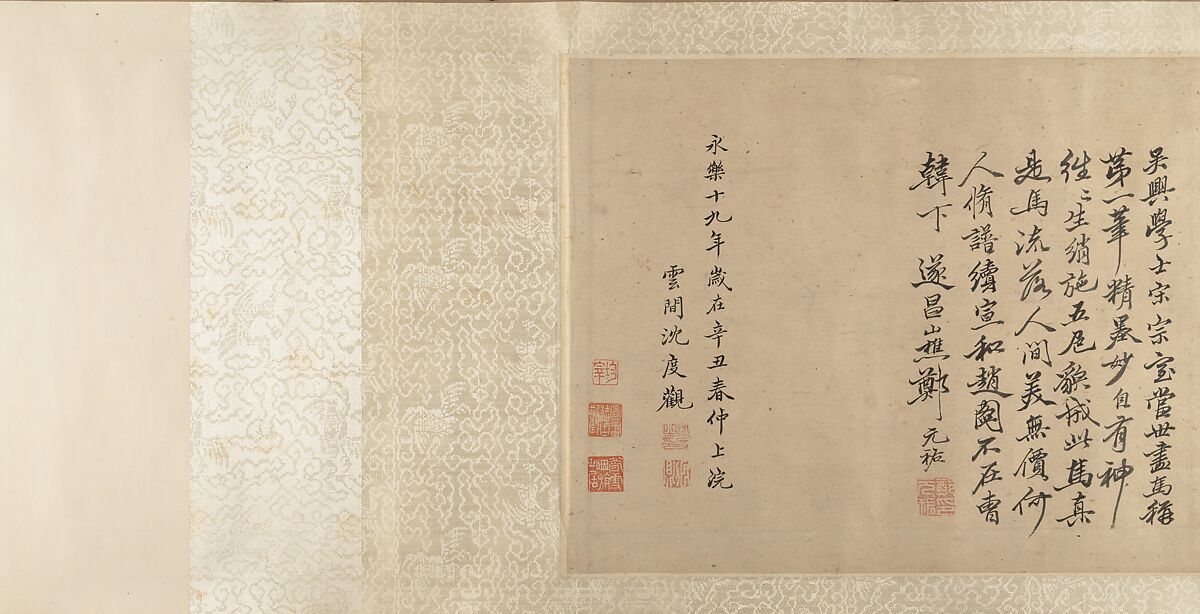 吳興學士宋宗室當世畫馬稱
第一筆精墨妙自有神
往〻生綃施五色貌成此馬真
是馬流落人間美無價何
人脩譜續宣和趙固不在曹
韓下 遂昌山樵鄭元祐
永樂十九年歲在辛丑春仲上浣
雲間沈度觀